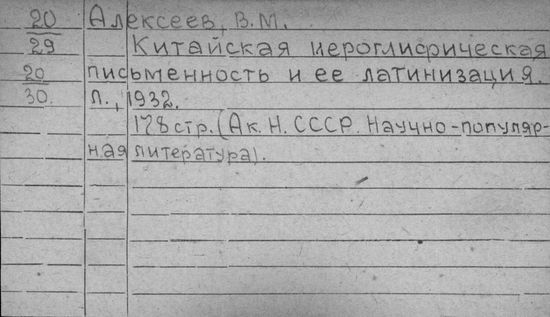 20 Алексеев, В.М.
29 Китайская иероглифрическая
20 письменность и ее латинизация.
30. Л., 1932.
178 стр. (Ак. Н. СССР. Научно-популяр-
ная литература).